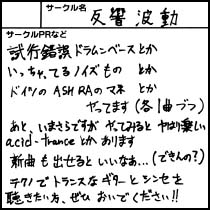 サークル名
反響波動
サークルPRなど
試行錯誤ドラムンベースとか
いっちゃってるノイズもの とか
ドイツの ASH RAのマネ とか
やってます(各1曲づつ)
あと、いまさらですが やってみると やはり楽しい
acid-tranceとかあります
新曲も出せるといいなあ…(できんの?)
テクノでトランスなギターとシンセを
聴きたい方、ぜひ おいでください!!